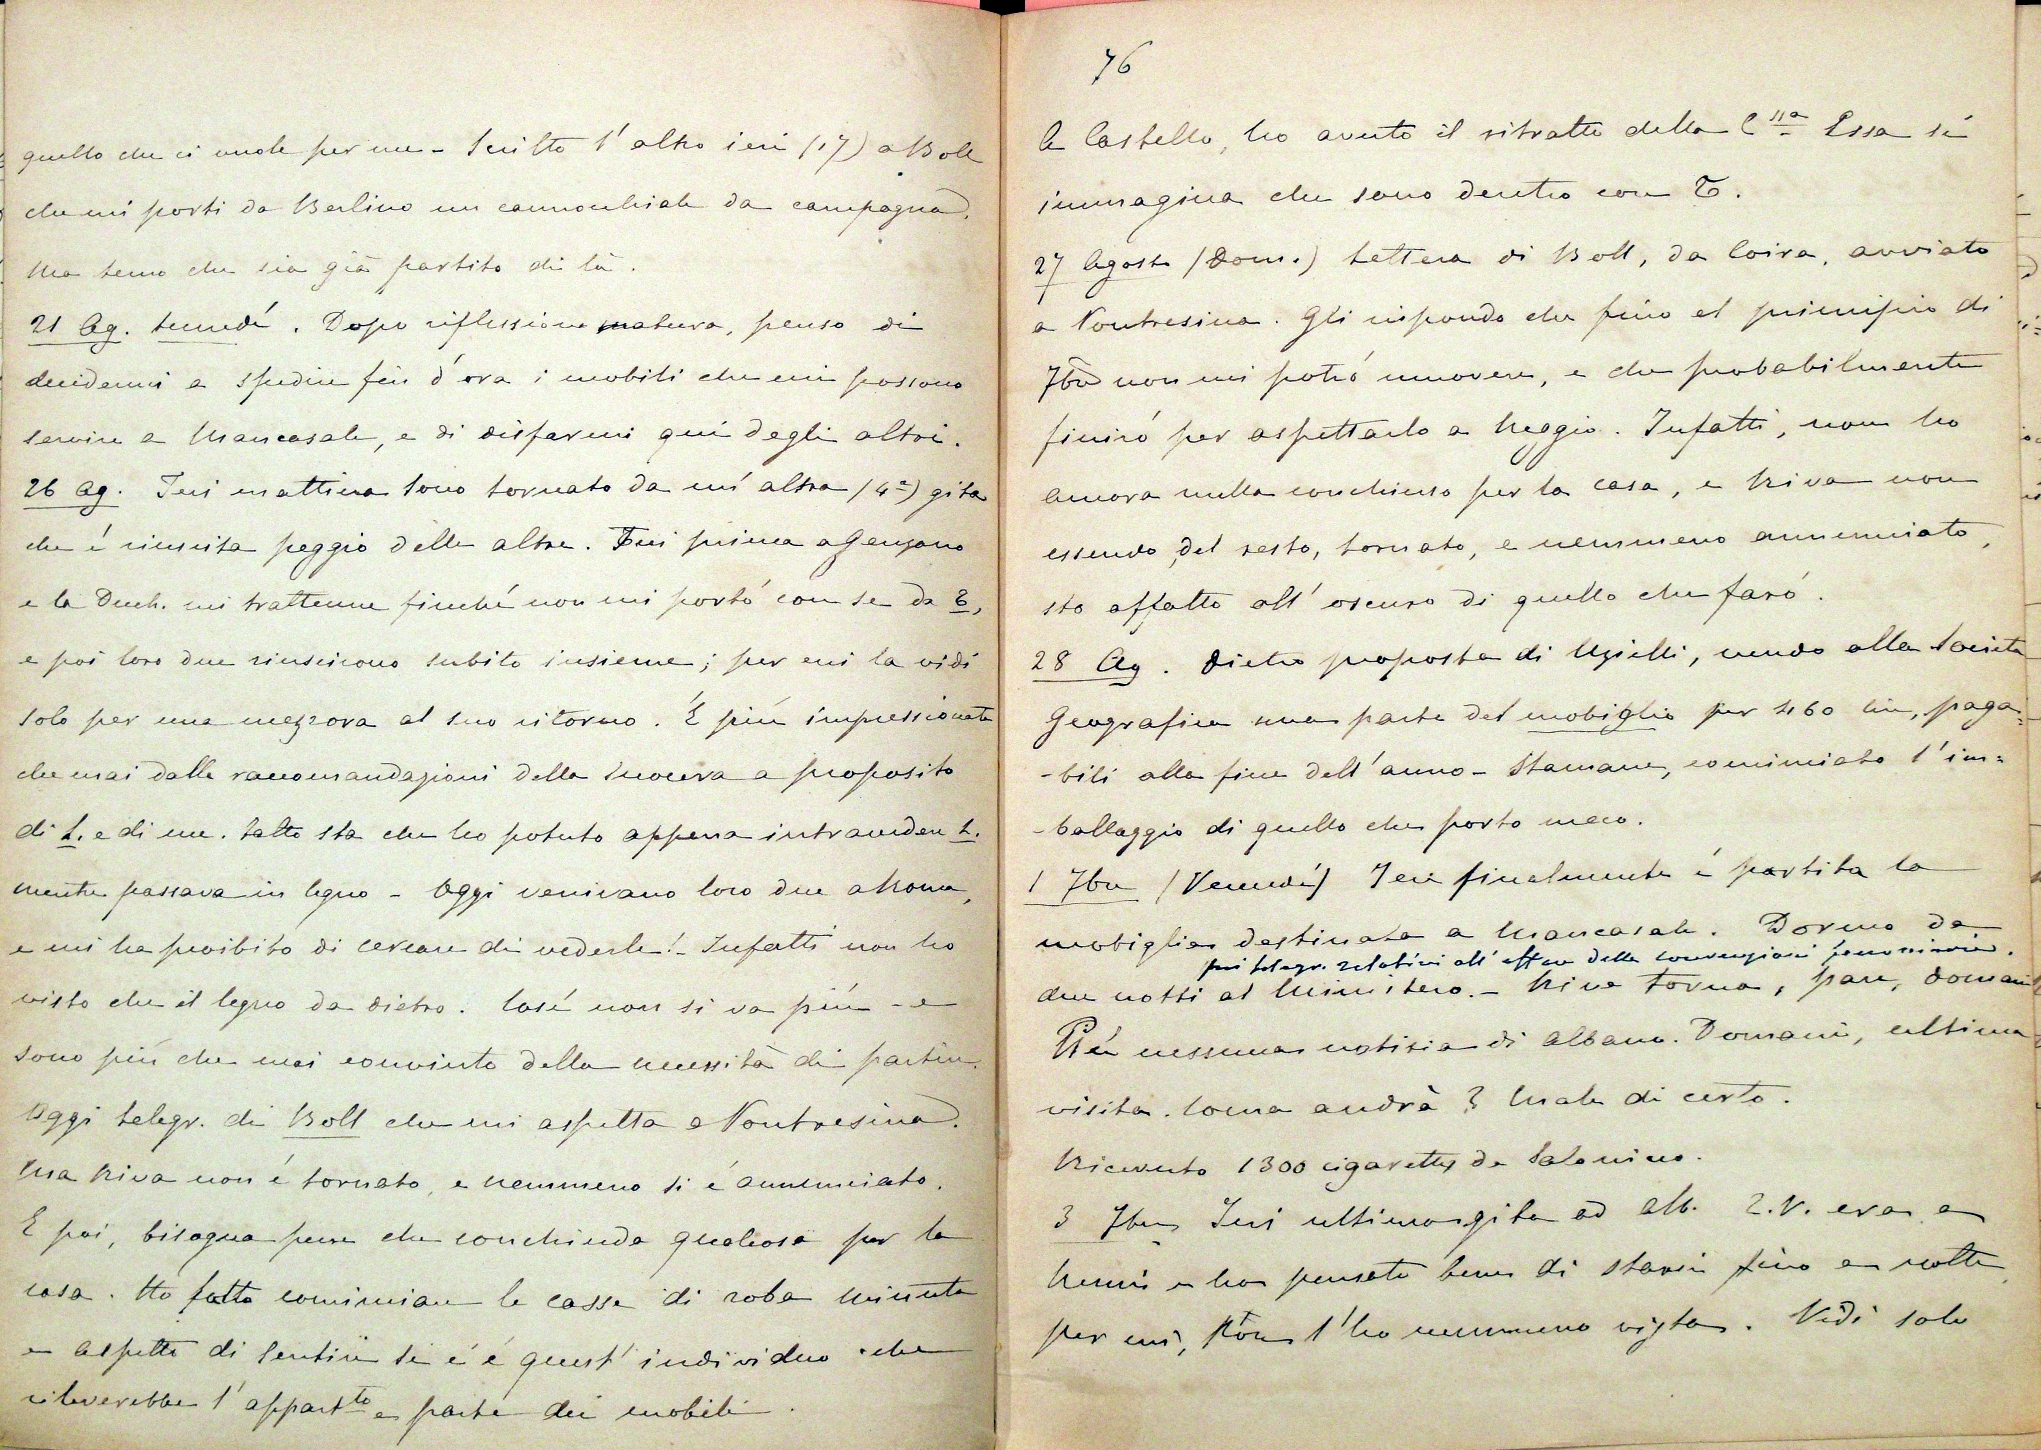 quello che ci vuole per me - Scritto l'altro ieri (17) a Boll
che mi porti da Berlino un cannocchiale da campagna.
Ma temo che sia già partito di là.
21 Ag. Lunedí. Dopo riflessione matura, penso di
decidermi a spedire fin d'ora i mobili che mi possono
servire a Mancasale, e di disfarmi qui degli altri.
26 Ag. Ieri mattina sono tornato da un'altra (4ª) gita
che é riuscita peggio delle altre. Fui prima a Genzano
e la Duch. mi trattenne finché non mi portó con se da
e poi loro due riuscirono subito insieme; per cui la vidi
solo per una mezzora al suo ritorno. É piú impressionata
che mai dalle raccomandazioni della Suocera a proposito
di L. e di me. Fatto sta che ho potuto appena intravedere L.
mentre passava in legno - Oggi venivano loro due a Roma,
e mi ha proibito di cercare di vederle! - Infatti non ho
visto che il legno da dietro. Cosí non si va piú - e
sono piú che mai convinto della necessità di partire.
Oggi telegr. di Boll che mi aspetta a Pontresina.
Ma Riva non é tornato, e nemmeno si é annunciato.
E poi, bisogna pure che conchiuda qualcosa per la
casa. Ho fatto cominciare le casse di roba minuta
e aspetto di sentire se c'é quest'individuo che
rileverebbe l'appartto e parte dei mobili.
76
A Castello, ho avuto il ritratto della Cssa Essa si
immagina che sono dentro con
27 Agosto (Dom.) Lettera di Boll, da Coira, avviato
a Pontresina. Gli rispondo che fino al principio di
7bre non mi potró muovere, e che probabilmente
finiró per aspettarlo a Reggio. Infatti, non ho
ancora nulla conchiuso per la casa, e Riva non
essendo, del resto, tornato, e nemmeno annunciato,
sto affatto all'oscuro di quello che faró.
28 Ag. Dietro proposta di Uzielli, vendo alla Società
Geografica una parte del mobiglio per 460 lire, paga=
-bili alla fine dell'anno - Stamane, cominciato l'im=
-ballaggio di quello che porto meco.
1 7bre (Venerdí) Ieri finalmente é partita la
mobiglia destinata a Mancasale. Dormo da
pei telegr. relativi all'affare delle convenzioni ferroviarie.
due notti al Ministero. - Riva torna, pare, domani
Piú nessuna notizia di Albano. Domani, ultima
visita. Come andrà? Male di certo.
Ricevuto 1300 cigarettes da
3 7bre Ieri ultima gita ad Alb. L.V. era a
Nemi e ha pensato bene di starci fino a notte
per cui, non l'ho nemmeno vista. Vidi solo